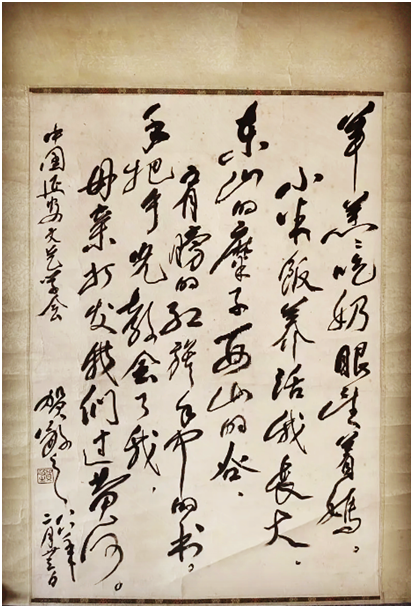 羊羔々吃奶眼望着妈。
小米饭养活我长大，
东山的糜子西山的谷，
肩膀的红旗手中的书。
手把手儿教会了我，
母亲打发我们过黄河。
中国延安文艺学会
贺敬之
二月廿三日